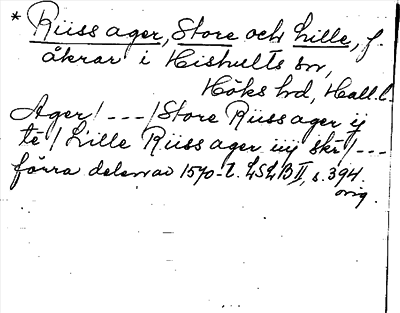 * Riiss ager, Store och Lille, f.
åkrar i Hishults sn,
Höks hd, Hall.l.
Ager/ --- /Store Riiss ager ij
te/ Lille Riiss ager iiij skr/ ---
förra delen av 1570-t. LSLB II, s. 394.
orig.